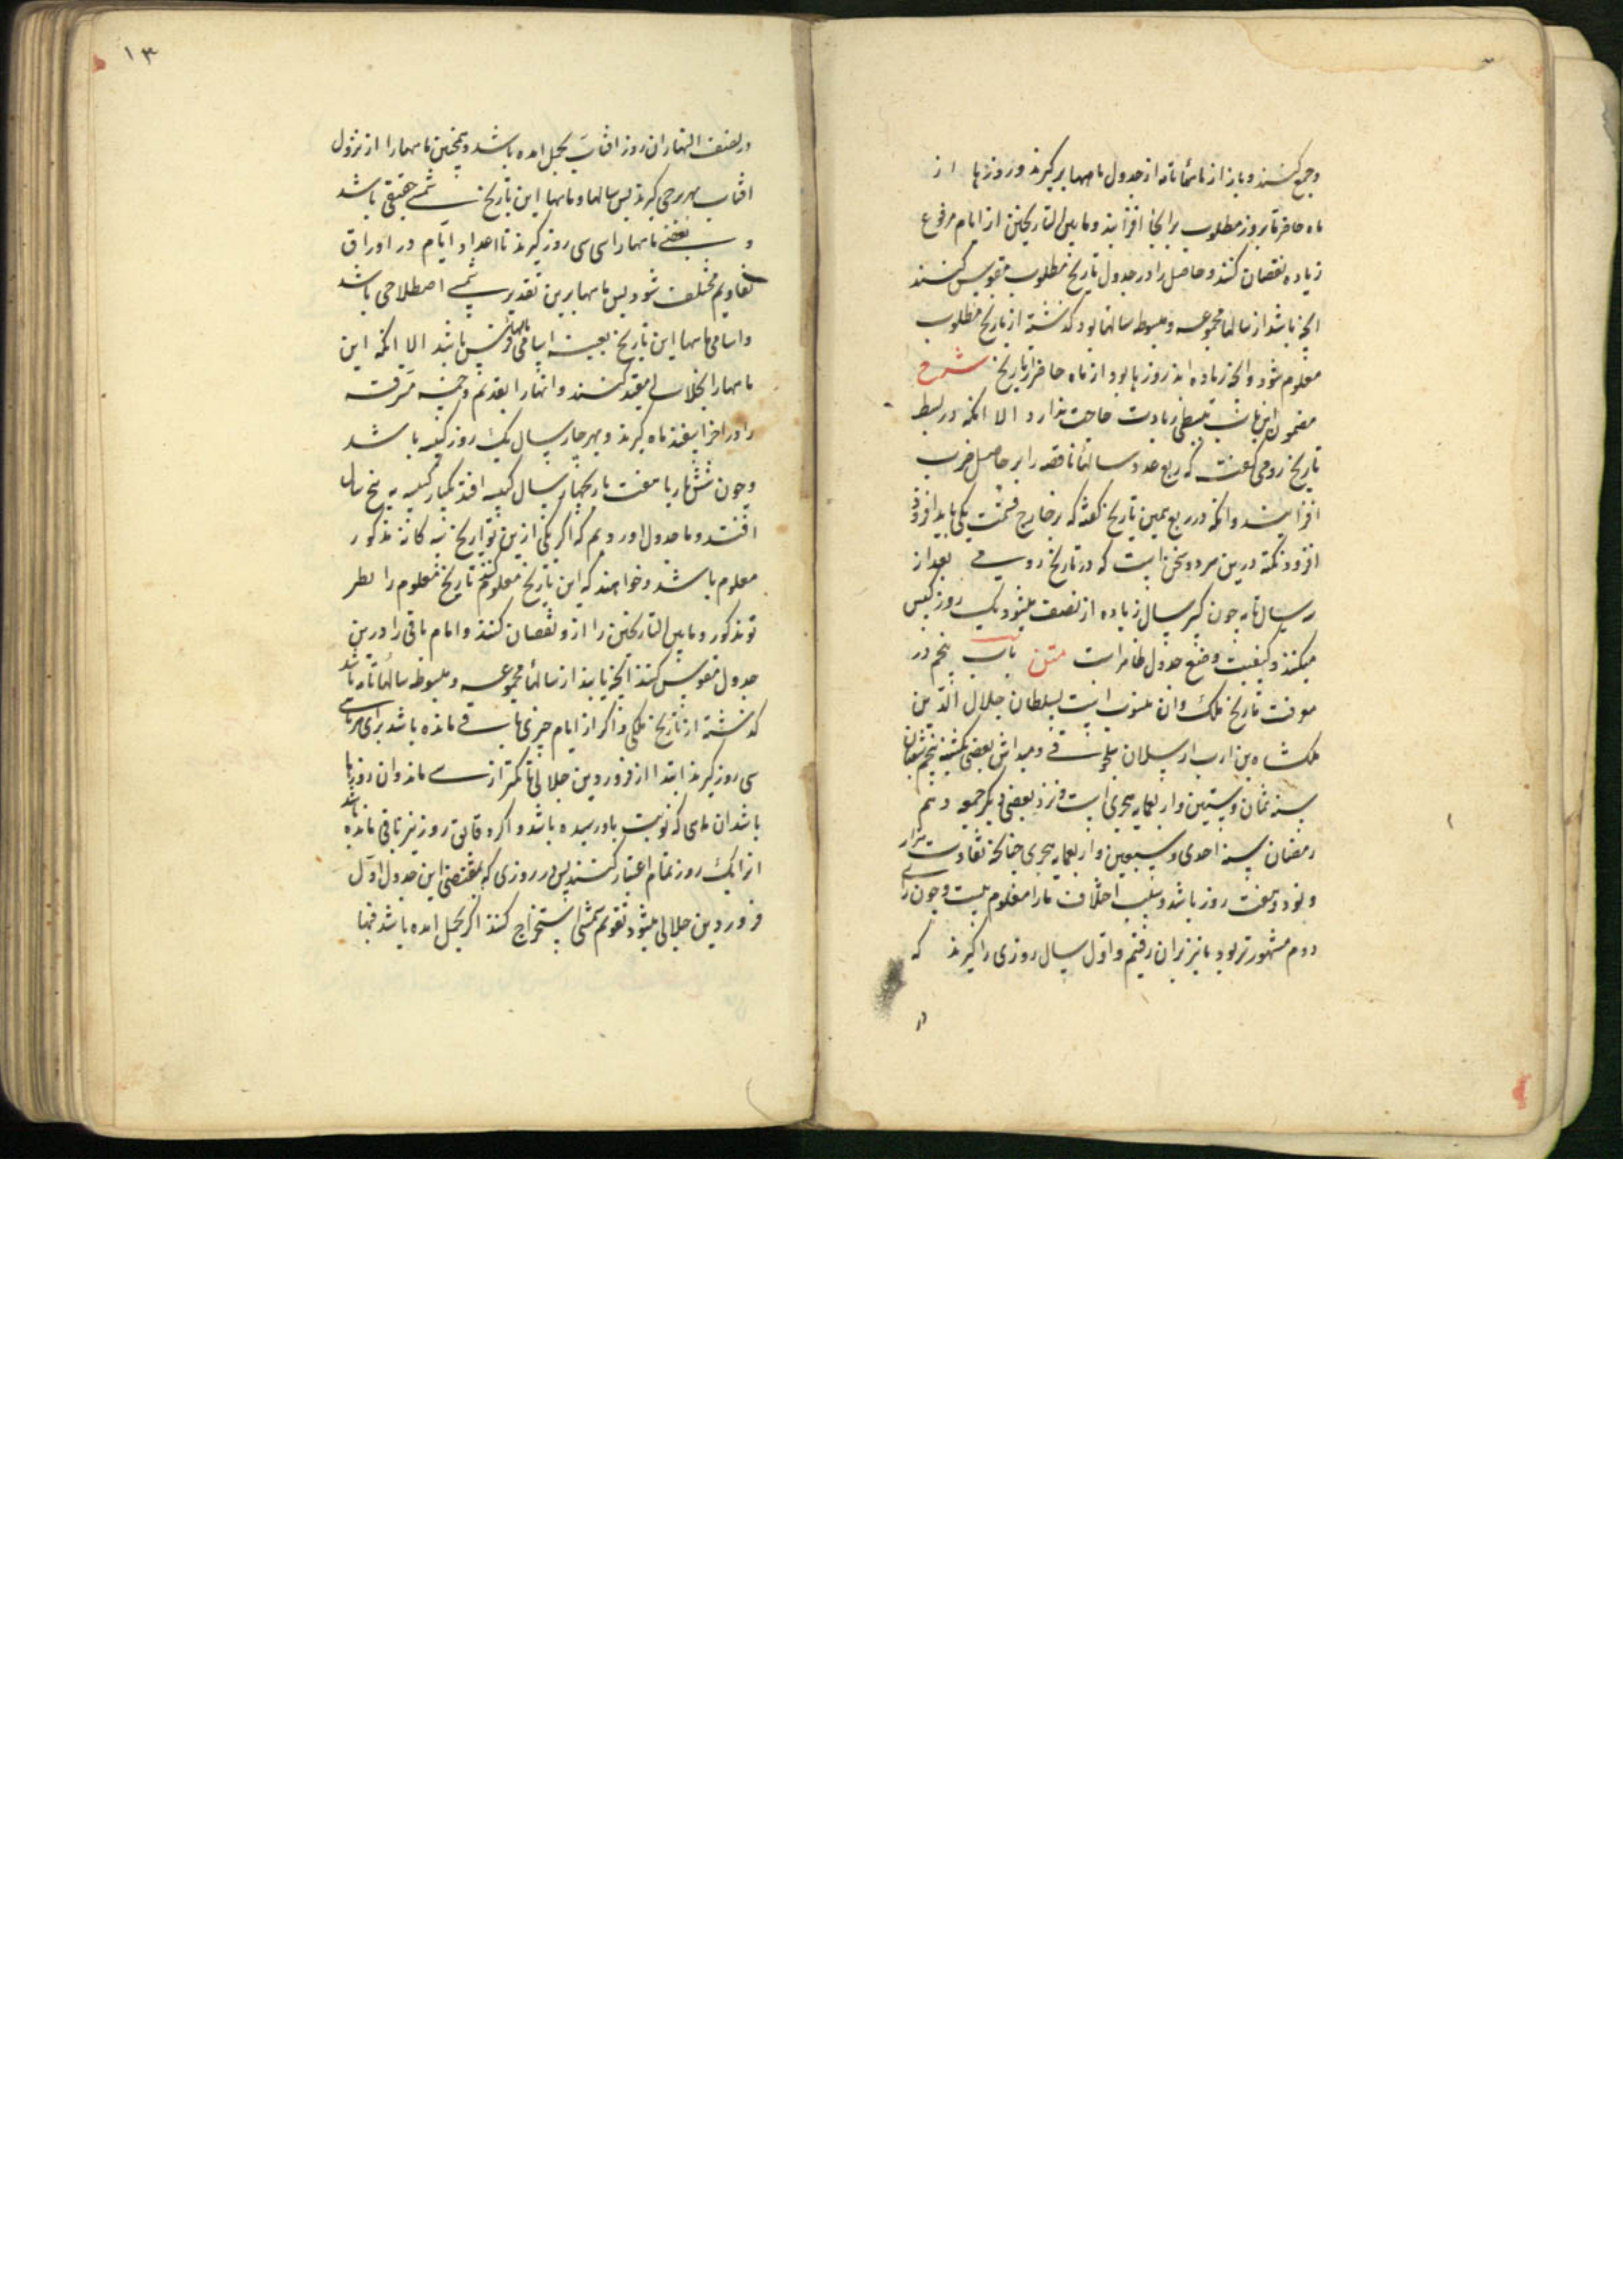 وجمع کنند و باز از ماههاء تامه از جدول ماهها برگیرند و روزها از
ماه حاضر تا بروز مطلوب بر آنجا افزایند و مابین التاریخین از ایام مرفوع
زیاده نقصان کنند و حاصل را در جدول تاریخ مطلوب مقوس کنند
انچه باشد از سالها مجموعه و مبسوطه سالها بود گذشته از تاریخ مطلوب
معلوم شود و انچه زیاده اید روزها بود از ماه حاضر از تاریخ شرح
مضمون این باب ببسطی زیادت حاجت ندارد الا انکه در بسط
تاریخ رومی گفت که ربع عدد سالهاء ناقصه را بر حاصل ضرب
افزایند و انکه در ربع همین تاریخ گفته که بر خارج قسمت یکی باید افزود
افزود نکته درین هر دو سخن است که در تاریخ رومی بعد از
سال تامه چون کسر سال زیاده از نصف میشود یک روز کبس
میکنند و کیفیت وضع جدول ظاهر است متن باب پنجم در
معرفت تاریخ ملک و ان منسوب است بسلطان جلال الدین
ملکشاه بن الب ارسلان سلجوقی و مبداش بعضی یکشنبه پنجم شعبان
سنه ثمان و ستین و اربعمایه هجری است و نزد بعضی دیگر جمعه دهم
رمضان سنه احدی و سبعین و اربعمایه هجری چنانکه تفاوت هزار
و نود و هفت روز باشد و سبب اختلاف ما را معلوم نیست و چون رای
دوم مشهورتر بود ما نیز بران رفتیم و اول سال روزی را گیرند که
در
۱۳
در نصف النهار ان روز افتاب بحمل امده باشد و همچنین ماهها را از نزول
افتاب بهر برجی گیرند پس سالها و ماهها این تاریخ شمسی حقیقی باشد
و بعضی ماهها را سی سی روز گیرند تا اعداد ایام در اوراق
تقاویم مختلف نشود پس ماهها برین تقدیر شمسی اصطلاحی باشد
و اسامی ماهها این تاریخ بعینه اسامی ماههاء فرس باشد الا انکه این
ماهها را بجلالی مقید کنند و انها را بقدیم و خمسه مسرقه
را در اخر اسفندماه گیرند و بهر چهار سال یک روز کبیسه باشد
و چون شش بار یا هفت بار بچهار سال کبیسه افتد یکبار کبیسه به پنج سال
افتد و ما جدول اوردیم که اگر یکی ازین تواریخ سه گانه مذکور
معلوم باشد و خواهند که این تاریخ معلوم کنند تاریخ معلوم را بطریق
مذکور و مابین التاریخین را از و نقصان کنند و ایام باقی را درین
جدول مقوس کنند انچه یابند از سالهاء مجموعه و مبسوطه سالهاء تامه باشد
گذشته از تاریخ ملکی و اگر از ایام چیزی باقی مانده باشد برای هر ماهی
سی روز گیرند ابتدا از فروردین جلالی تا کمتر از سی ماند و ان روزها
باشد از ماهی که نوبت باو رسیده باشد و اگر دقایق روز نیز باقی مانده باشد
انرا یک روز تمام اعتبار کنند پس در روزی که بمقتضی این جدول اول
فروردین جلالی میشود تقویم شمس استخراج کنند اگر بحمل امده باشد فبها